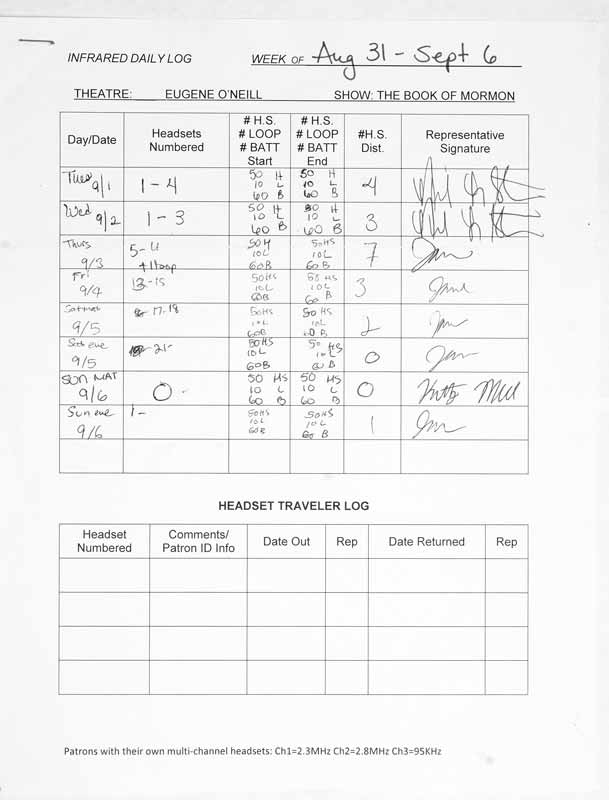 INFRARED DAILY LOG WEEK OF Aug 31 - Sept 6
THEATRE: EUGENE O'NEILL SHOW: THE BOOK OF MORMON
Day/Date Headsets Numbered # H.S. # LOOP # BATT Start # H.S. # LOOP # BATT End #H.S. Dist. Representative Signature
Tues 9/1 1-4 50 H 10 L 60 B 50 H 10 L 60 B 4
Wed 9/2 1-3 50 H 10 L 60 B 50 H 10 L 60 B 3
Thurs 9/3 5-11 + 1 loop 50H 10L 60B 50HS 10L 60B 7
Fri 9/4 13-15 50HS 10L 60B 50 HS 10L 60 B 3
Sat mat 9/5 17-18 50HS 10L 60B 50 HS 10L 60 B 2
Sat eve 9/5 21- 50HS 10L 60B 50 HS 10L 60 B 0
SUN MAT 9/6 0 50 HS 10 L 60 B 50 HS 10 L 60 B 0
Sun eve 9/6 1- 50HS 10L 60B 50HS 10L 60 B 1
HEADSET TRAVELER LOG
Headset Numbered Comments/ Patron ID Info Date Out Rep Date Returned Rep
Patrons with their own multi-channel headsets: Ch1=2.3MHz Ch2=2.8MHz Ch3=95KHz